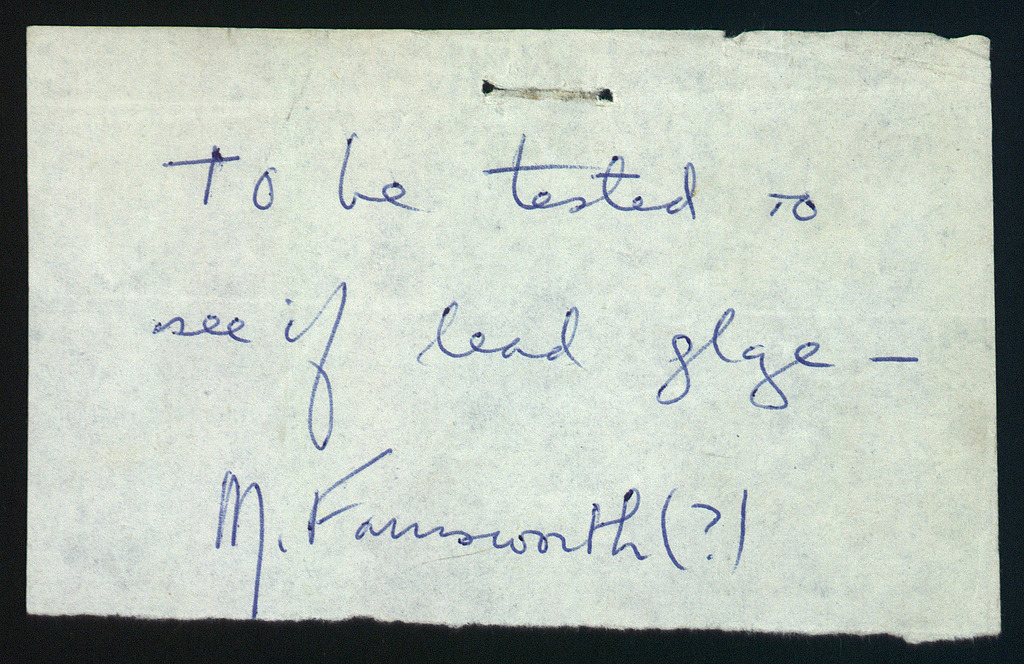 To be tested to
see if lead glaze —
M. Farnsworth (?)